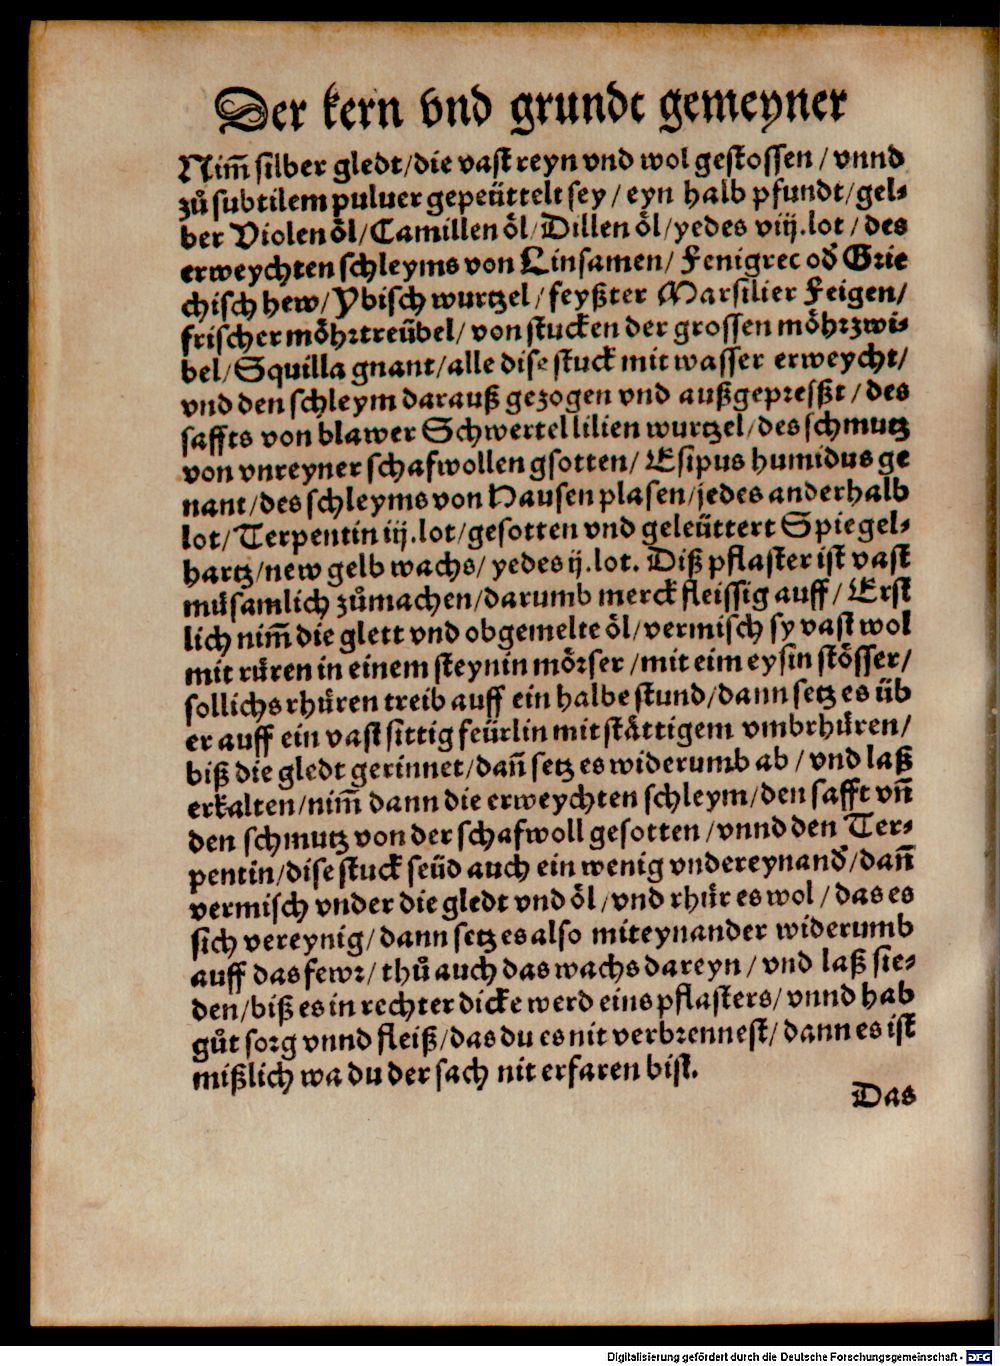 Der kern vnd grundt gemeyner
Nim̃ silber gledt/die vast reyn vnd wol gestossen/vnnd
zů subtilem puluer gepeüttelt sey/eyn halb pfundt/gel-
ber Violen öl/Camillen öl/Dillen öl/yedes viij.lot/des
erweychten schleyms von Linsamen/Fenigrec od̕ Grie
chisch hew/Ybisch wurtzel/feyßter Marsilier Feigen/
frischer möhrtreübel/von stucken der grossen möhrzwi-
bel/Squilla gnant/alle dise stuck mit wasser erweycht/
vnd den schleym darauß gezogen vnd außgepreßt/des
saffts von blawer Schwertel lilien wurtzel/des schmutz
von vnreyner schafwollen gsotten/Esipus humidus ge
nant/des schleyms von Hausen plasen/jedes anderhalb
lot/Terpentin iij.lot/gesotten vnd geleüttert Spiegel-
hartz/new gelb wachs/yedes ij.lot. Diß pflaster ist vast
müsamlich zůmachen/darumb merck fleissig auff/Erst
lich nim̃ die glett vnd obgemelte öl/vermisch sy vast wol
mit rüren in einem steynin mörser/mit eim eysin stösser/
sollichs rhüren treib auff ein halbe stund/dann setz es üb
er auff ein vast sittig feürlin mit stättigem vmbrhüren/
biß die gledt gerinnet/dañ setz es widerumb ab/vnd laß
erkalten/nim̃ dann die erweychten schleym/den safft vñ
den schmutz von der schafwoll gesotten/vnnd den Ter-
pentin/dise stuck seüd auch ein wenig vndereynand̕/dañ
vermisch vnder die gledt vnd öl/vnd rhür es wol/das es
sich vereynig/dann setz es also miteynander widerumb
auff das fewr/thů auch das wachs dareyn/vnd laß sie-
den/biß es in rechter dicke werd eins pflasters/vnnd hab
gůt sorg vnnd fleiß/das du es nit verbrennest/dann es ist
mißlich wa du der sach nit erfaren bist.
Das
Digitalisierung gefördert durch die Deutsche Forschungsgemeinschaft - DFG